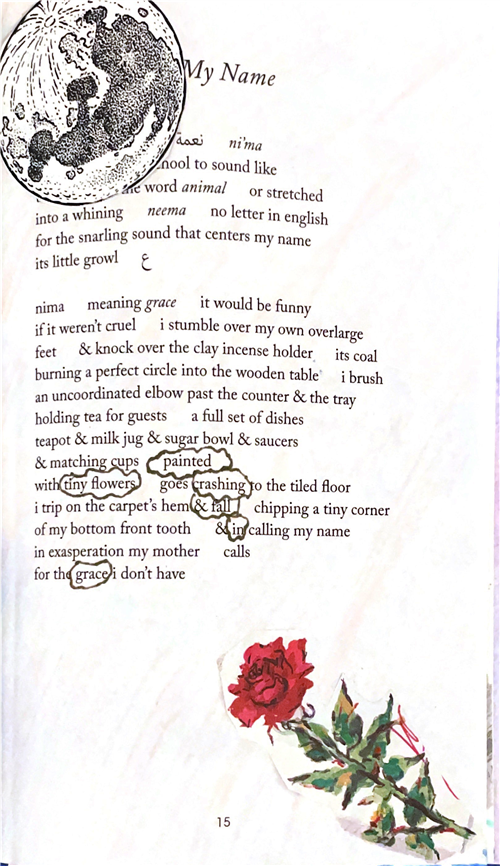 My Name
نعمة ni'ma
to sound like
the word animal or stretched
into a whining neema no letter in english
for the snarling sound that centers my name
its little growl ع
nima meaning grace it would be funny
if it weren't cruel i stumble over my own overlarge
feet & knock over the clay incense holder its coal
burning a perfect circle into the wooden table i brush
an uncoordinated elbow past the counter & the tray
holding tea for guests a full set of dishes
teapot & milk jug & sugar bowl & saucers
& matching cups painted
with tiny flowers goes crashing to the tiled floor
i trip on the carpet's hem & fall chipping a tiny corner
of my bottom front tooth & in calling my name
in exasperation my mother calls
for the grace i don't have
15